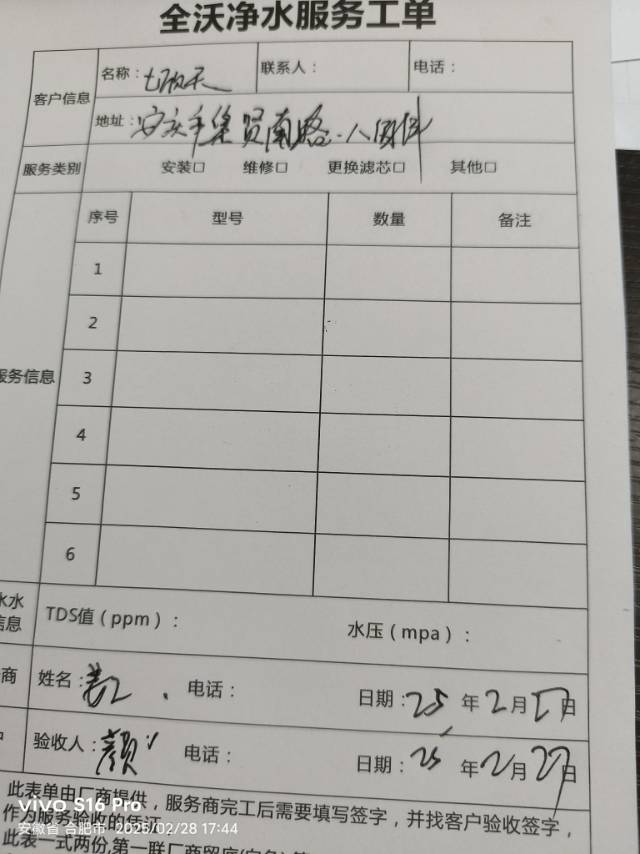 全沃净水服务工单
客户信息
名称：七河天 联系人： 电话：
地址：安庆市集贤南路
服务类别 安装□ 维修□ 更换滤芯□ 其他□
序号 型号 数量 备注
1
2
服务信息 3
4
5
6
水
信息 TDS值（ppm）： 水压（mpa）：
商 姓名： 电话： 日期：25年2月27日
验收人：颜 电话： 日期：25年2月27日
此表单由厂商提供，服务商完工后需要填写签字，并找客户验收签字，
作为服务验收的凭证
此表一式两份，第一联厂商留底
vivo S16 Pro
安徽省 合肥市 2025/02/28 17:44